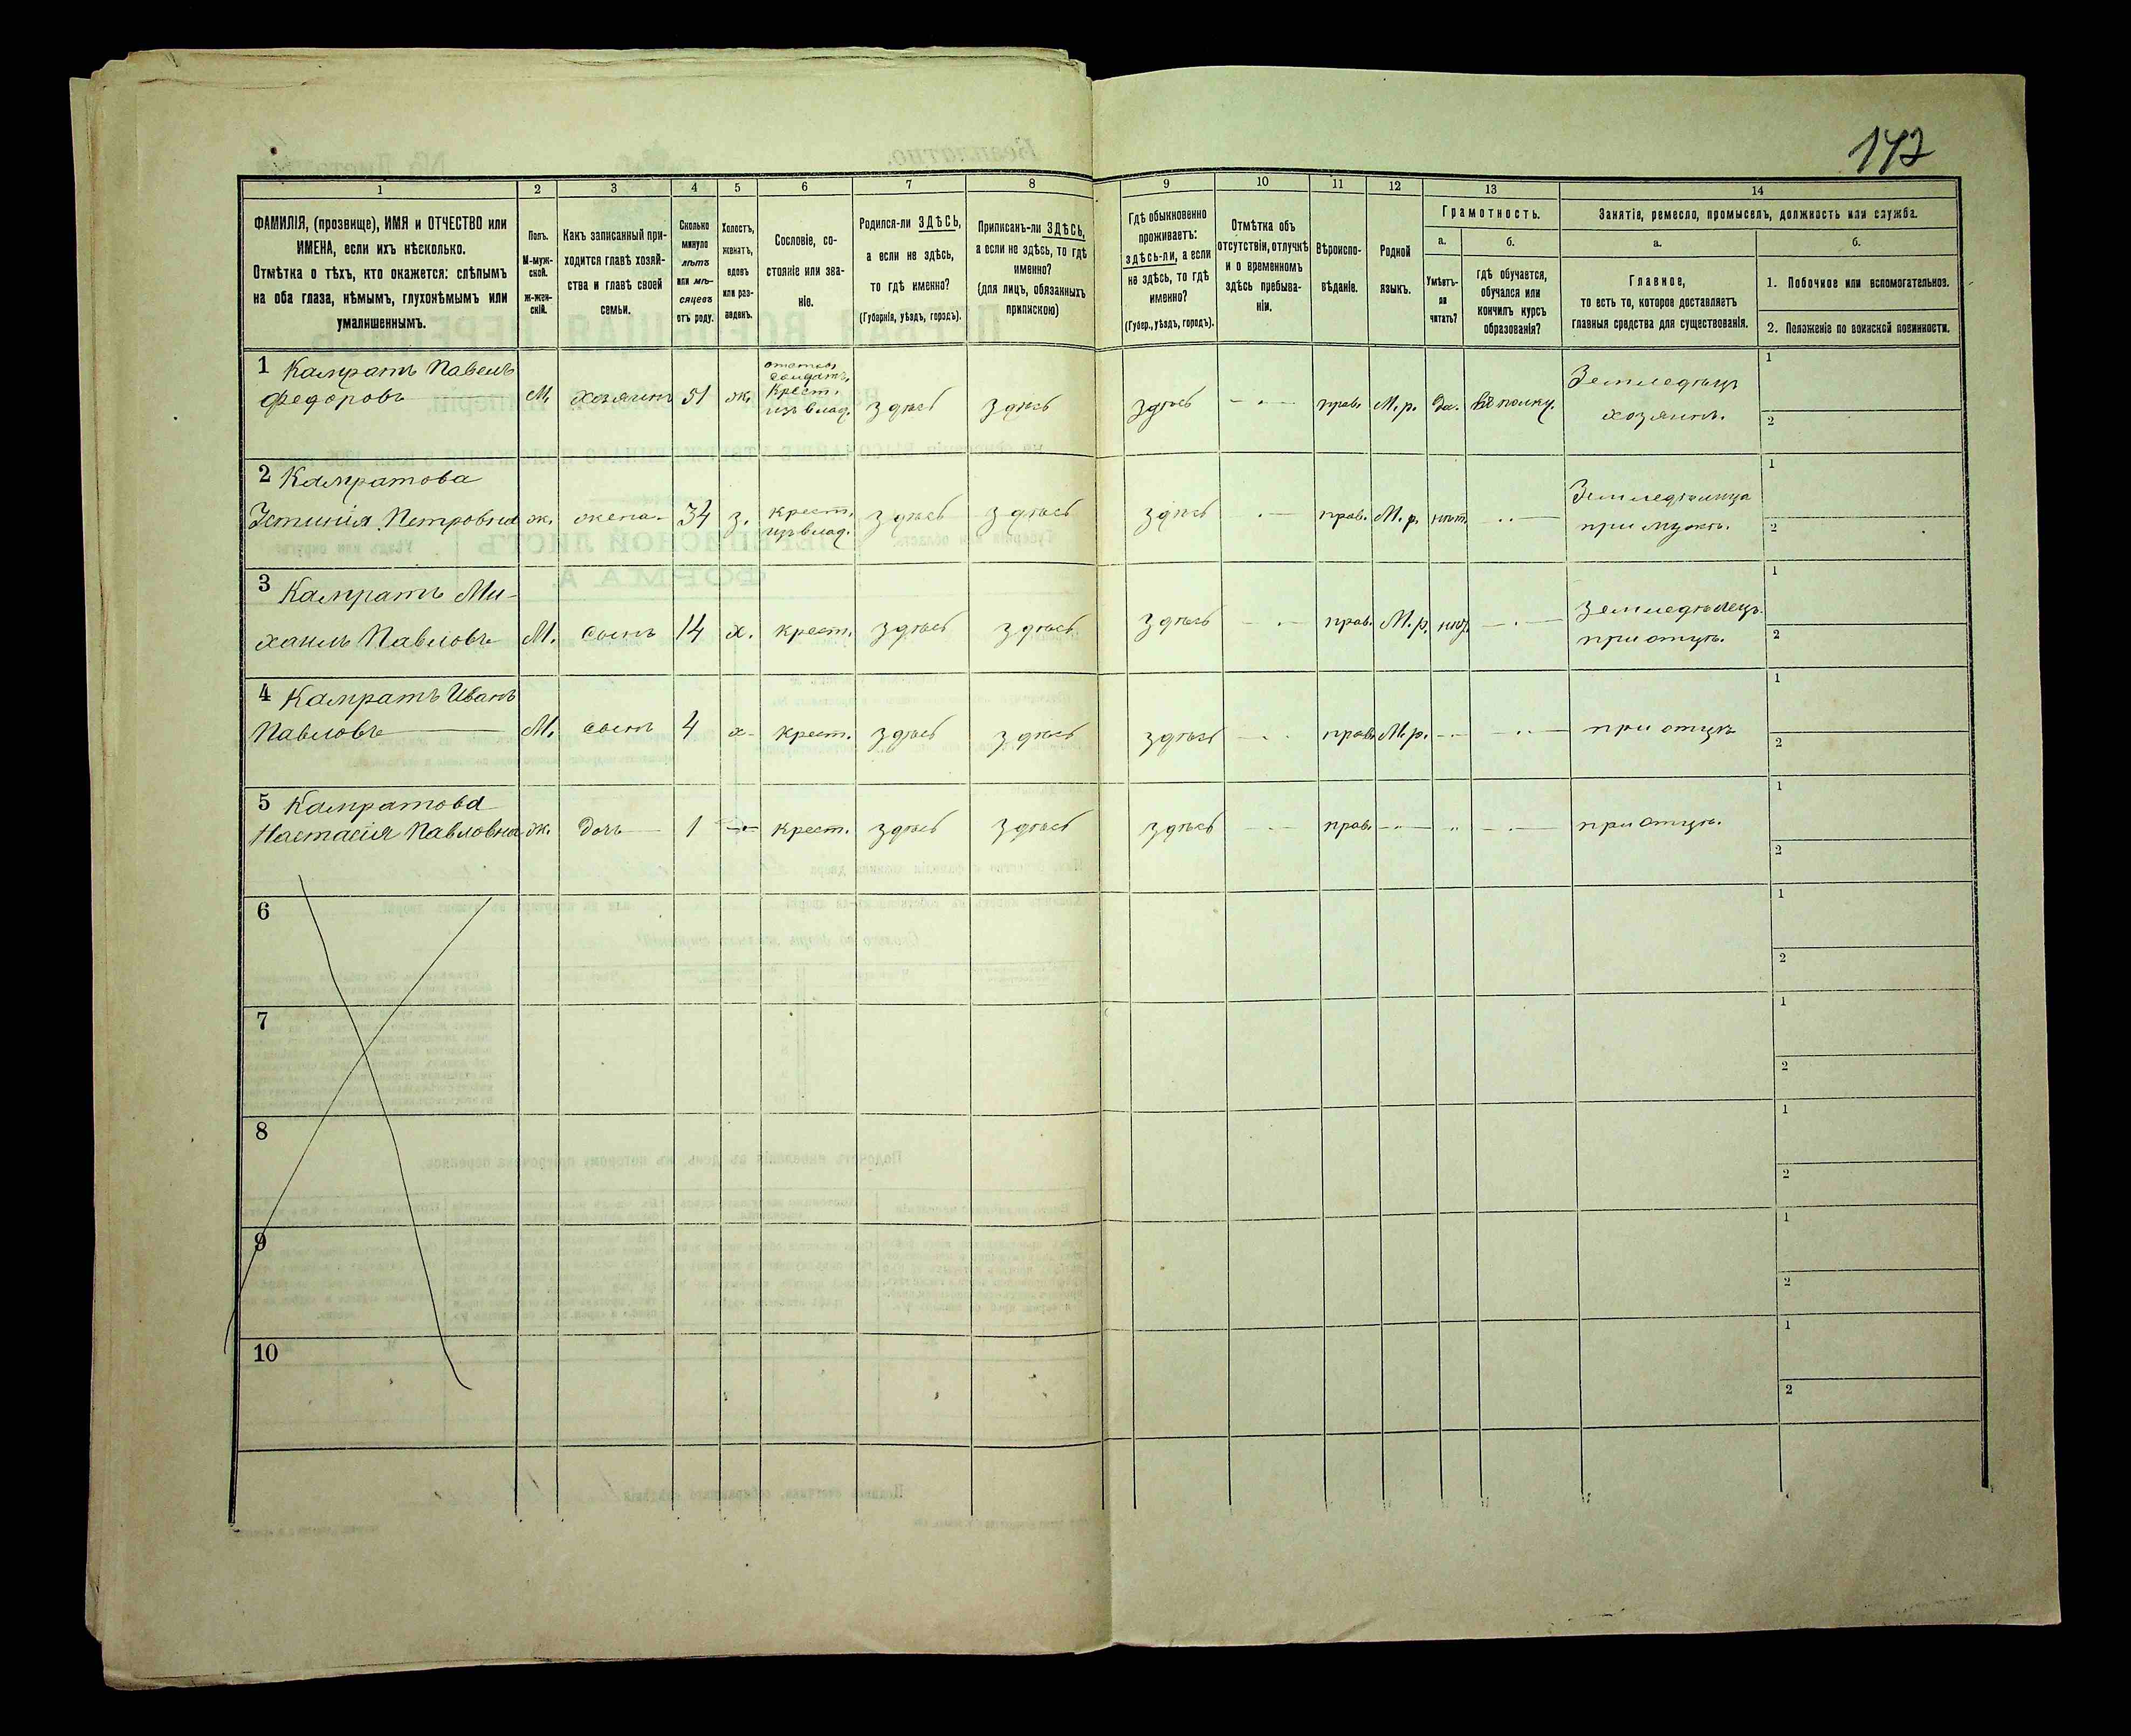 147
1
2
3
4
5
6
7
8
9
10
11
12
13
14
ФАМИЛІЯ, (прозвище), ИМЯ и ОТЧЕСТВО или
ИМЕНА, если ихъ нѣсколько.
Отмѣтка о тѣхъ, кто окажется: слѣпымъ
на оба глаза, нѣмымъ, глухонѣмымъ или
умалишеннымъ.
Полъ.
М-муж-
ской.
ж-жен-
скій.
Какъ записанный при-
ходится главѣ хозяй-
ства и главѣ своей
семьи.
Сколько
минуло
лѣтъ
или мѣ-
сяцевъ
отъ роду.
Холостъ,
женатъ,
вдовъ
или раз-
веденъ.
Сословіе, со-
стояніе или зва-
ніе.
Родился-ли ЗДѢСЬ,
а если не здѣсь,
то гдѣ именно?
(Губернія, уѣздъ, городъ).
Приписанъ-ли ЗДѢСЬ,
а если не здѣсь, то гдѣ
именно?
(для лицъ, обязанныхъ
припискою)
Гдѣ обыкновенно
проживаетъ:
здѣсь-ли, а если
не здѣсь, то гдѣ
именно?
(Губер., уѣздъ, городъ).
Отмѣтка объ
отсутствіи, отлучкѣ
и о временномъ
здѣсь пребыва-
ніи.
Вѣроиспо-
вѣданіе.
Родной
языкъ.
Грамотность.
а.
Умѣетъ-
ли
читать?
б.
гдѣ обучается,
обучался или
кончилъ курсъ
образованія?
Занятіе, ремесло, промыселъ, должность или служба.
а.
Главное,
то есть то, которое доставляетъ
главныя средства для существованія.
б.
1. Побочное или вспомогательное.
2. Положеніе по воинской повинности.
1 Кампратъ Павелъ
Федоровъ
М. хозяинъ 51 ж.
Крест.
изъ влад.
здѣсь здѣсь здѣсь прав. М.р. да. въ полку.
Земледѣлецъ
хозяинъ.
1
2
2 Кампратова
Устинія Петровна ж. жена 34 з. крест.
изъ влад.
здѣсь здѣсь здѣсь прав. М.р. нѣт.
Земледѣлица
при мужѣ.
1
2
3 Кампратъ Ми-
хаилъ Павловъ М. сынъ 14 х. крест. здѣсь здѣсь здѣсь прав. М.р. нѣт.
земледѣлецъ
при отцѣ.
1
2
4 Кампратъ Иванъ
Павловъ М. сынъ 4 х. крест. здѣсь здѣсь здѣсь прав. М.р. при отцѣ
1
2
5 Кампратова
Настасія Павловна ж. дочь 1 крест. здѣсь здѣсь здѣсь прав. при отцѣ.
1
2
6
1
2
7
1
2
8
1
2
9
1
2
10
1
2